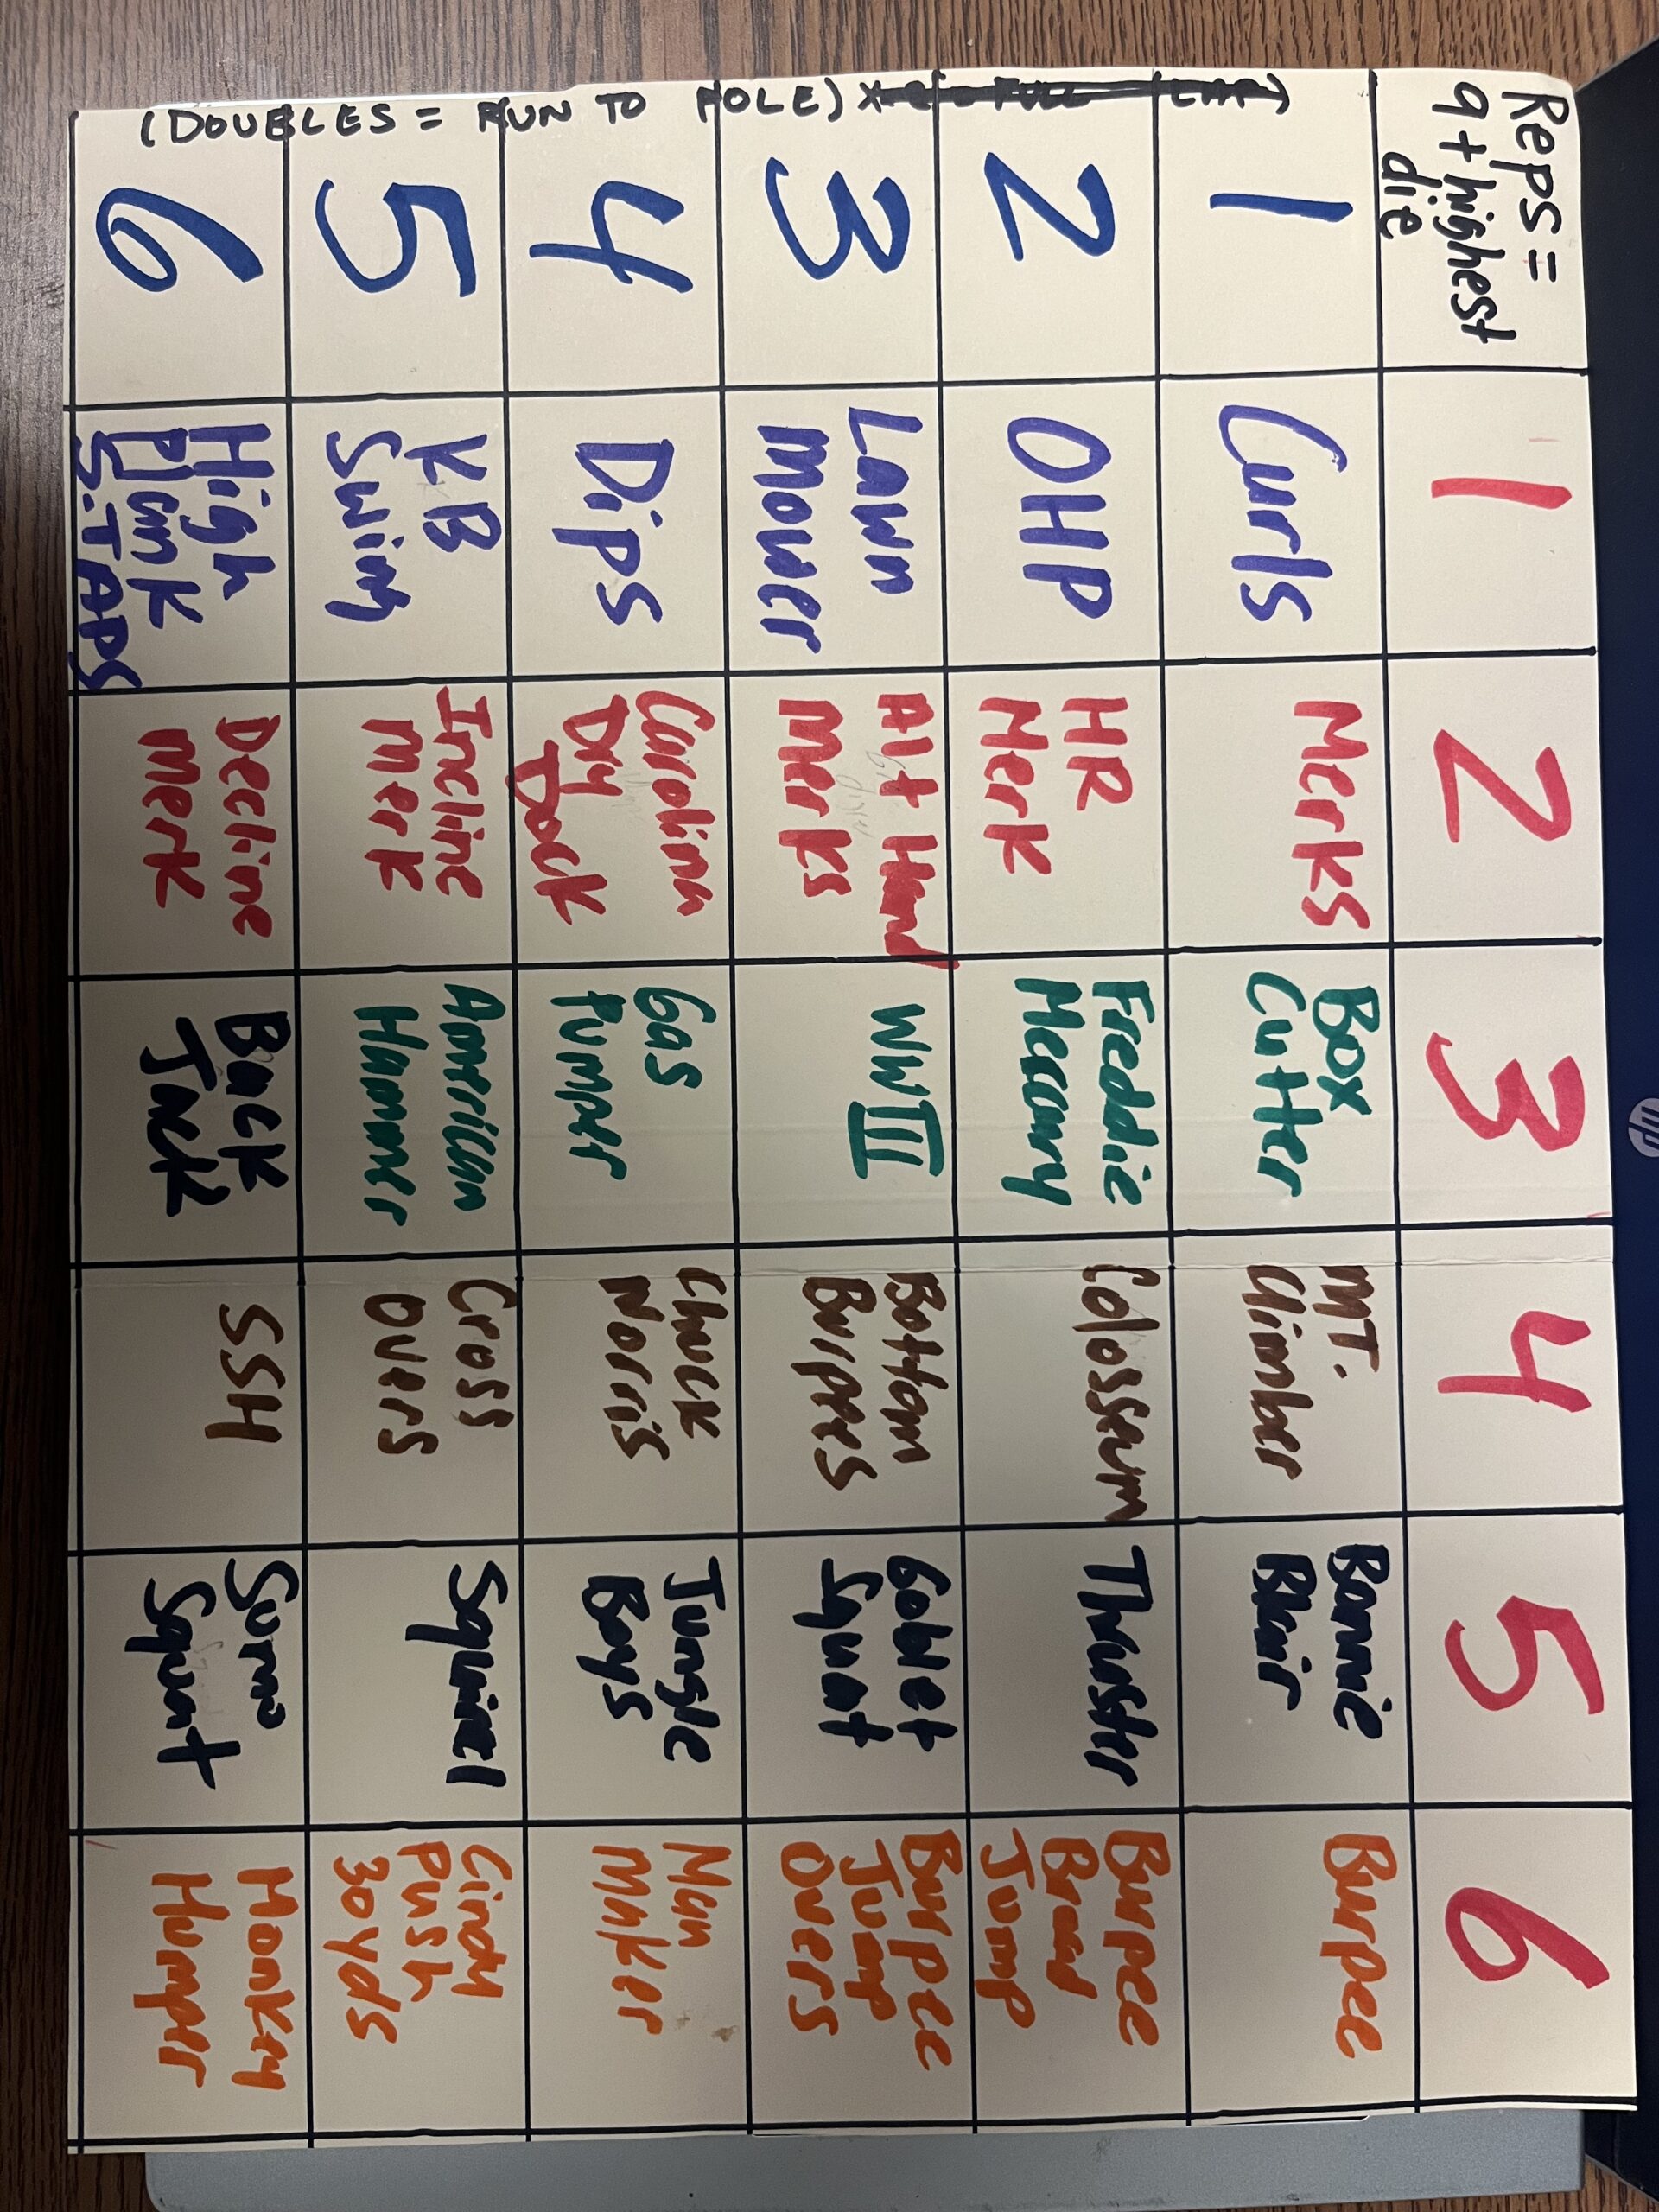 Reps =
9 + highest
die
1
2
3
4
5
6
1
Curls
Merks
Box
Cutter
MT.
Climber
Bonnie
Blair
Burpee
2
OHP
HR
Merk
Freddie
Mercury
Colossum
Thruster
Burpee
Broad
Jump
3
Lawn
Mower
Alt Hand
Merks
WWIII
Bottom
Burpees
Goblet
Squat
Burpee
Jump
Overs
4
Dips
Carolina
Dry
Dock
Gas
Pumper
Chuck
Norris
Jungle
Boys
Man
Maker
5
KB
Swing
Incline
Merk
American
Hammer
Cross
Overs
Squirrel
Cindy
Push
30yds
6
High
Plank
S.TAPS
Decline
Merk
Back
Jack
SSH
Sumo
Squat
Monkey
Humper
(DOUBLES = RUN TO POLE) *
hp